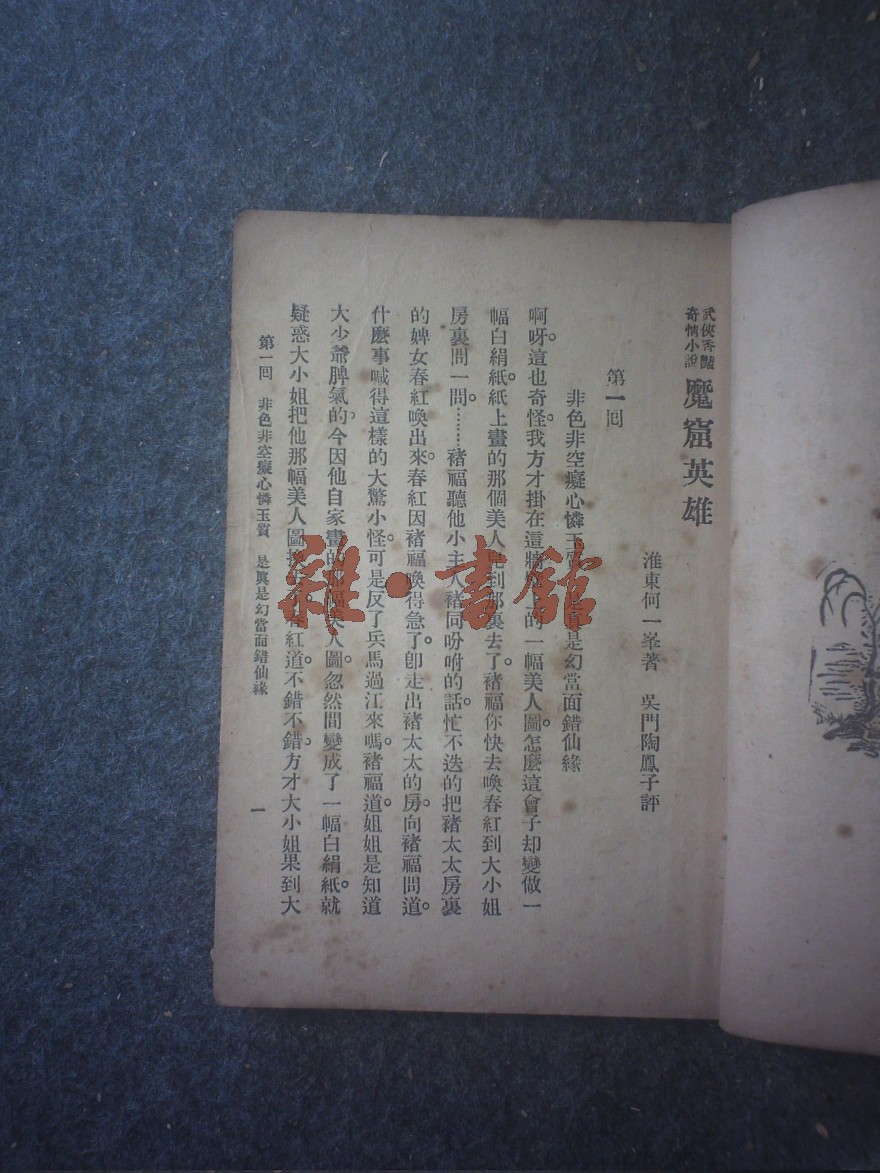 武俠香豔
奇情小說
魔窟英雄
淮東何一峯著 吳門陶鳳子評
第一回
非色非空癡心憐玉質 是真是幻當面錯仙緣
啊呀。這也奇怪。我方才掛在這 的一幅美人圖。怎麼這會子却變做一
幅白絹紙。紙上畫的那個美人 到那裏去了。褚福你快去喚春紅到大小姐
房裏問一問。……褚福聽他小主人褚同吩咐的話。忙不迭的把褚太太房裏
的婢女春紅喚出來。春紅因褚福喚得急了。卽走出褚太太的房。向褚福問道。
什麼事喊得這樣的大驚小怪。可是反了兵馬過江來嗎。褚福道。姐姐是知道
大少爺脾氣的。今因他自家畫的那幅美人圖。忽然間變成了一幅白絹紙。就
疑惑大小姐把他那幅美人圖 春紅道。不錯不錯。方才大小姐果到大
第一回 非色非空癡心憐玉質 是眞是幻當面錯仙緣
一
雜·書館